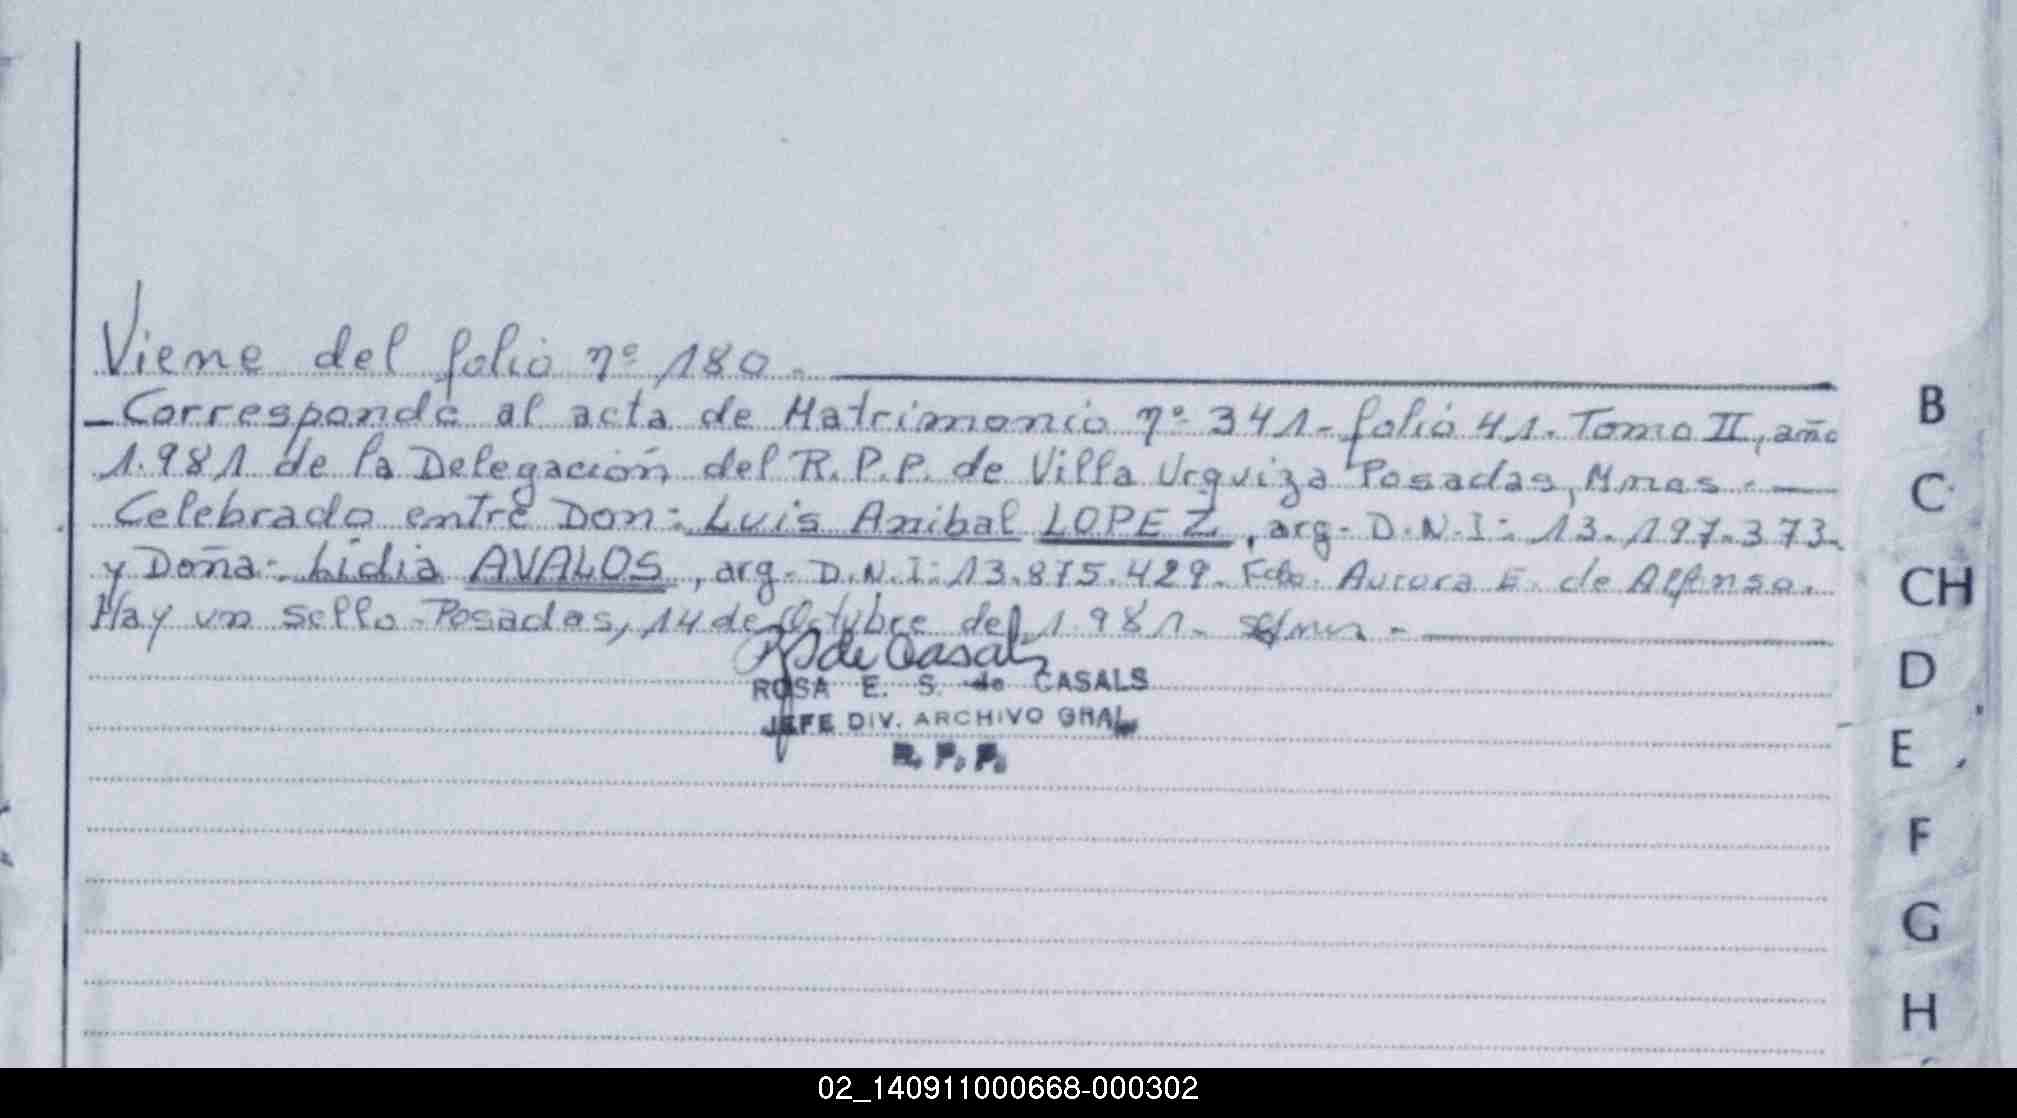 Viene del folio nº 180.
- Corresponde al acta de Matrimonio nº 341- folio 41. Tomo II, año
1.981 de la Delegación del R.P.P. de Villa Urquiza Posadas, Mnes. —
Celebrado entre Don: Luis Anibal LOPEZ, arg- D.N.I: 13.197.373.
y Doña: Lidia AVALOS, arg- D.N.I: 13.875.429. Fdo. Aurora E. de Alfonso.
Hay un sello- Posadas, 14 de Octubre del 1.981.
de Casals
ROSA E. S. de CASALS
JEFE DIV. ARCHIVO GRAL.
R. P. P.
B
C
CH
D
E
F
G
H
02_140911000668-000302